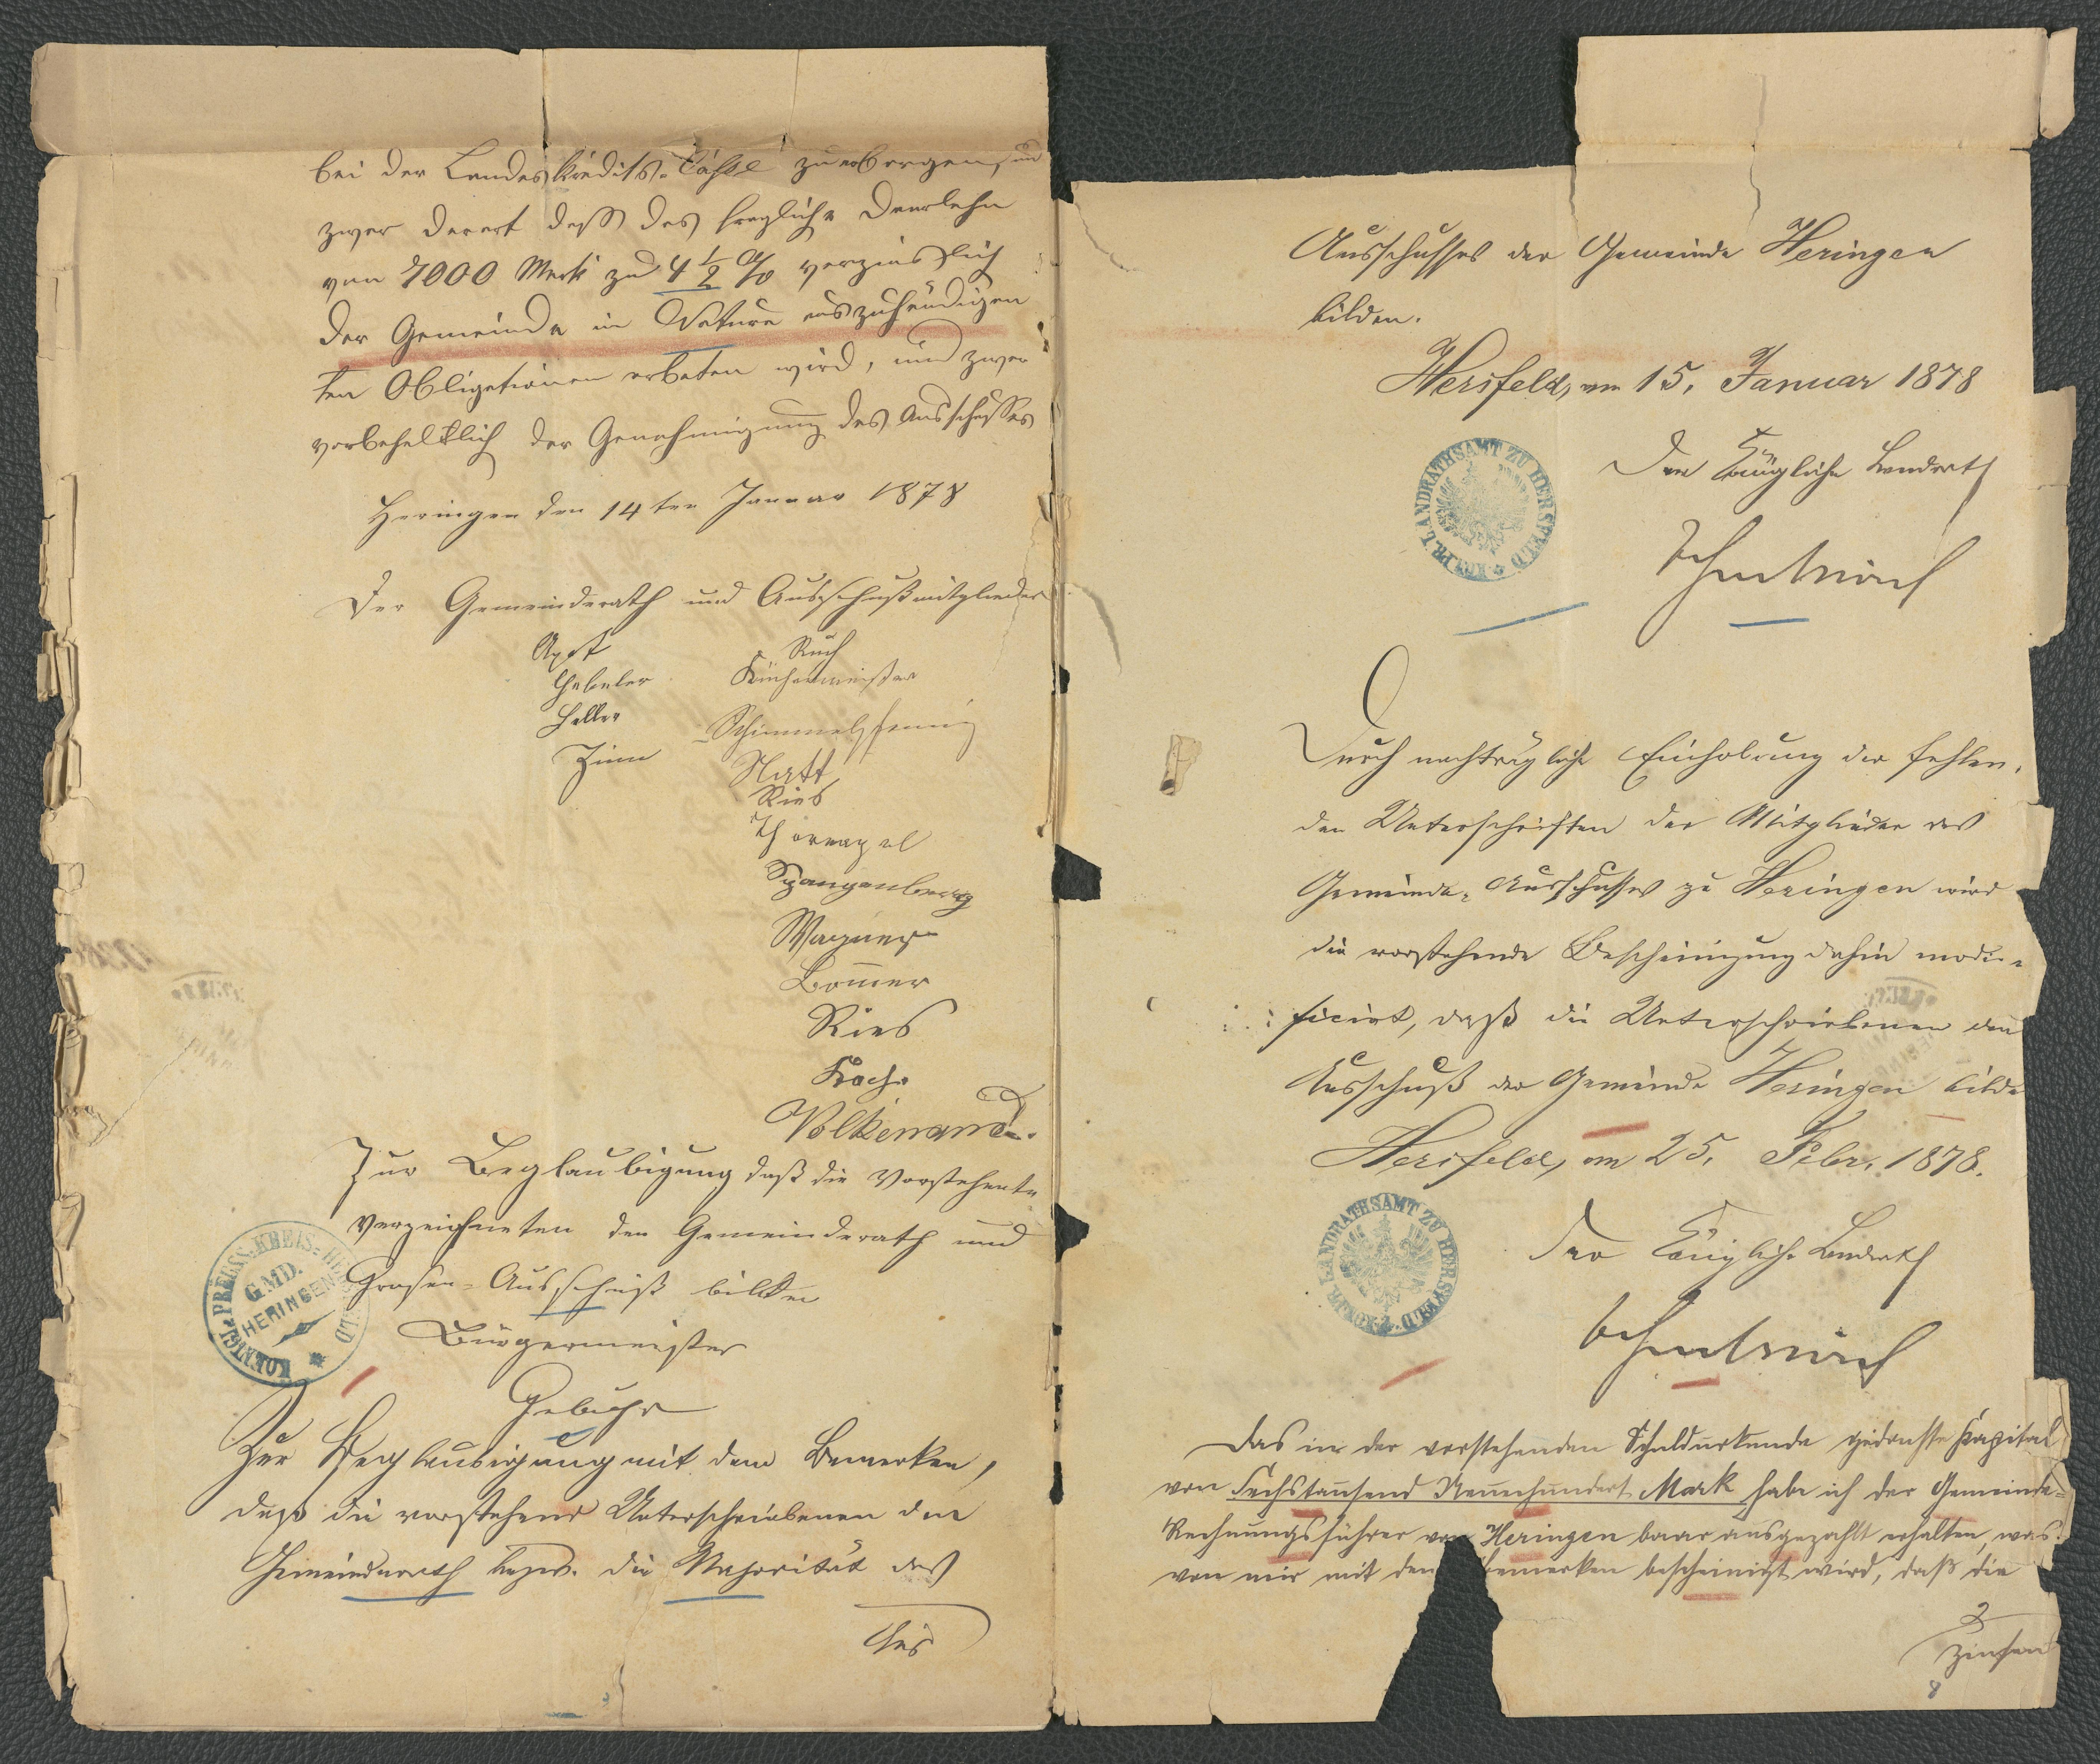 bei der Landeskredits-Casse zu erborgen, und
zwar derart daß das fragliche Darlehn
von 7000 Mark zu 4 1/2 % verzinslich
der Gemeinde in Natura auszuhändigen
ten Obligationen erbeten wird, und zwar
vorbehaltlich der Genehmigung des Ausschusses
Heringen den 14ten Januar 1878
Der Gemeinderath und Ausschußmitglieder
Apel Ruch
Gebeler Küchenmeister
Heller Schimmelpfennig
Zinn Natt
Ries
Thornagel
Spangenberg
Wagner
Bommer
Ries
Koch
Volkenand.
Zur Beglaubigung daß die Vorstehente
verzeichneten den Gemeinderath und
Grosen-Ausschuß bilden
Bürgermeister
KOENIGL. PREUSS. KREIS HERSFELD
GMD.
HERINGEN
Zur Beglaubigung mit dem Bemerken,
daß die vorstehend Unterschriebenen den
Gemeinderath bezw. die Majorität des
Aus
Ausschusses der Gemeinde Heringen
bilden.
Hersfeld, am 15. Januar 1878
Der Königliche Landrath
KGL. PR. LANDRATHSAMT ZU HERSFELD
Durch nachträgliche Einholung der fehlen-
den Unterschriften der Mitglieder des
Gemeinde-Ausschusses zu Heringen wird
die vorstehende Bescheinigung dahin modi-
ficirt, daß die Unterschriebenen den
Ausschuß der Gemeinde Heringen bilde
Hersfeld, am 25. Febr. 1878.
Der Königliche Landrath
KGL. PR. LANDRATHSAMT ZU HERSFELD
Das in der vorstehenden Schuldurkunde gedachte Kapital
von Sechstausend Neunhundert Mark habe ich der Gemeinde-
Rechnungsführer von Heringen baar ausgezahlt erhalten, was
von mir mit dem Bemerken bescheinigt wird, daß die
Zinsen
8